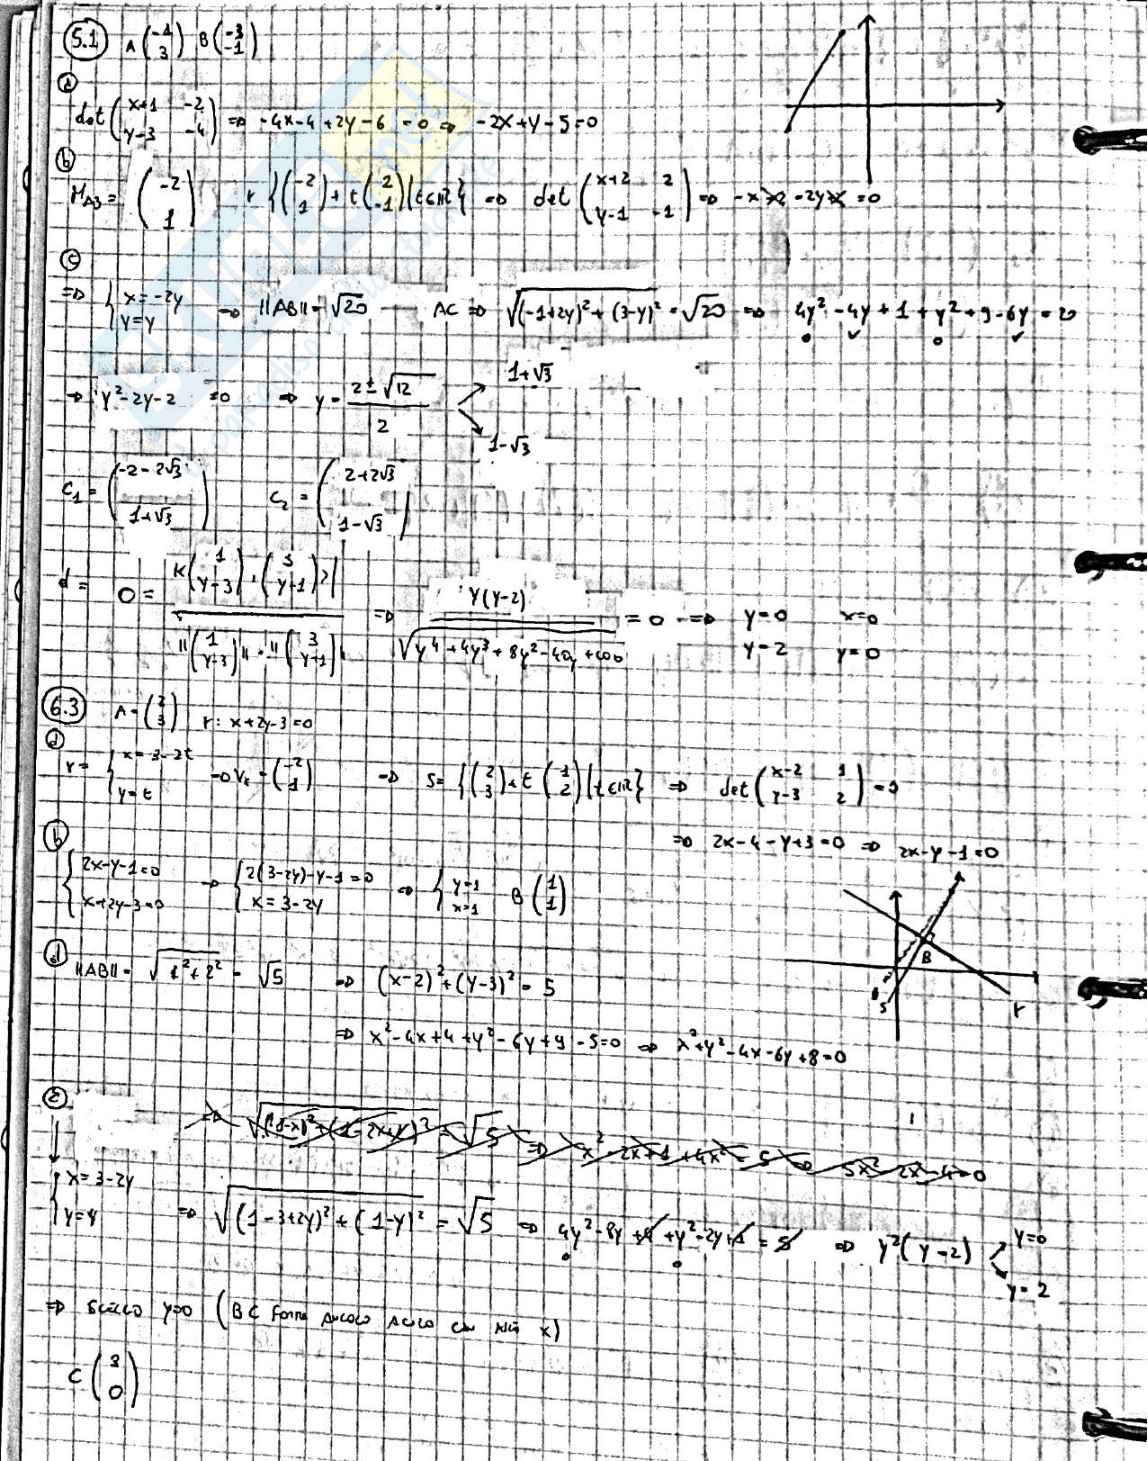 5.1 A(-1 3) B(-3 -1)
a
det(x+1 -2 y-3 -4) ⇒ -4x-4+2y-6=0 ⇒ -2x+y-5=0
b
M_AB = (-2 1) r {(-2 1)+t(2 -1)|t∈ℝ} ⇒ det(x+2 2 y-1 -1) ⇒ -x-2-2y+2=0
c
⇒ {x=-2y y=y ⇒ ||AB||=√20 AC ⇒ √(-1+2y)²+(3-y)²=√20 ⇒ 4y²-4y+1+y²+9-6y=20
⇒ y²-2y-2=0 ⇒ y=2±√12/2 1+√3
1-√3
C₁=(-2-2√3 1+√3) C₂=(2+2√3 1-√3)
d= 0=|<(1 y-3),(3 y+1)>|/||(1 y-3)||·||(3 y+1)|| ⇒ y(y-2)/√y⁴+4y³+8y²-40y+100=0 ⇒ y=0 x=0
y=2 y=0
6.3 A=(2 3) r: x+2y-3=0
a
r={x=3-2t y=t ⇒ Vr=(-2 1) ⇒ S={(2 3)+t(1 2)|t∈ℝ} ⇒ det(x-2 1 y-3 2)=0
⇒ 2x-4-y+3=0 ⇒ 2x-y-1=0
b
{2x-y-1=0 x+2y-3=0 ⇒ {2(3-2y)-y-1=0 x=3-2y ⇒ {y=1 x=1 B(1 1)
B
s
r
d ||AB||=√1²+2²=√5 ⇒ (x-2)²+(y-3)²=5
⇒ x²-4x+4+y²-6y+9-5=0 ⇒ x²+y²-4x-6y+8=0
e
{x=3-2y y=y ⇒ √(1-3+2y)²+(1-y)²=√5 ⇒ 4y²-8y+4+y²-2y+1=5 ⇒ y²(y-2) y=0
y=2
⇒ scelgo y=0 (BC forma angolo acuto con asse x)
C(3 0)